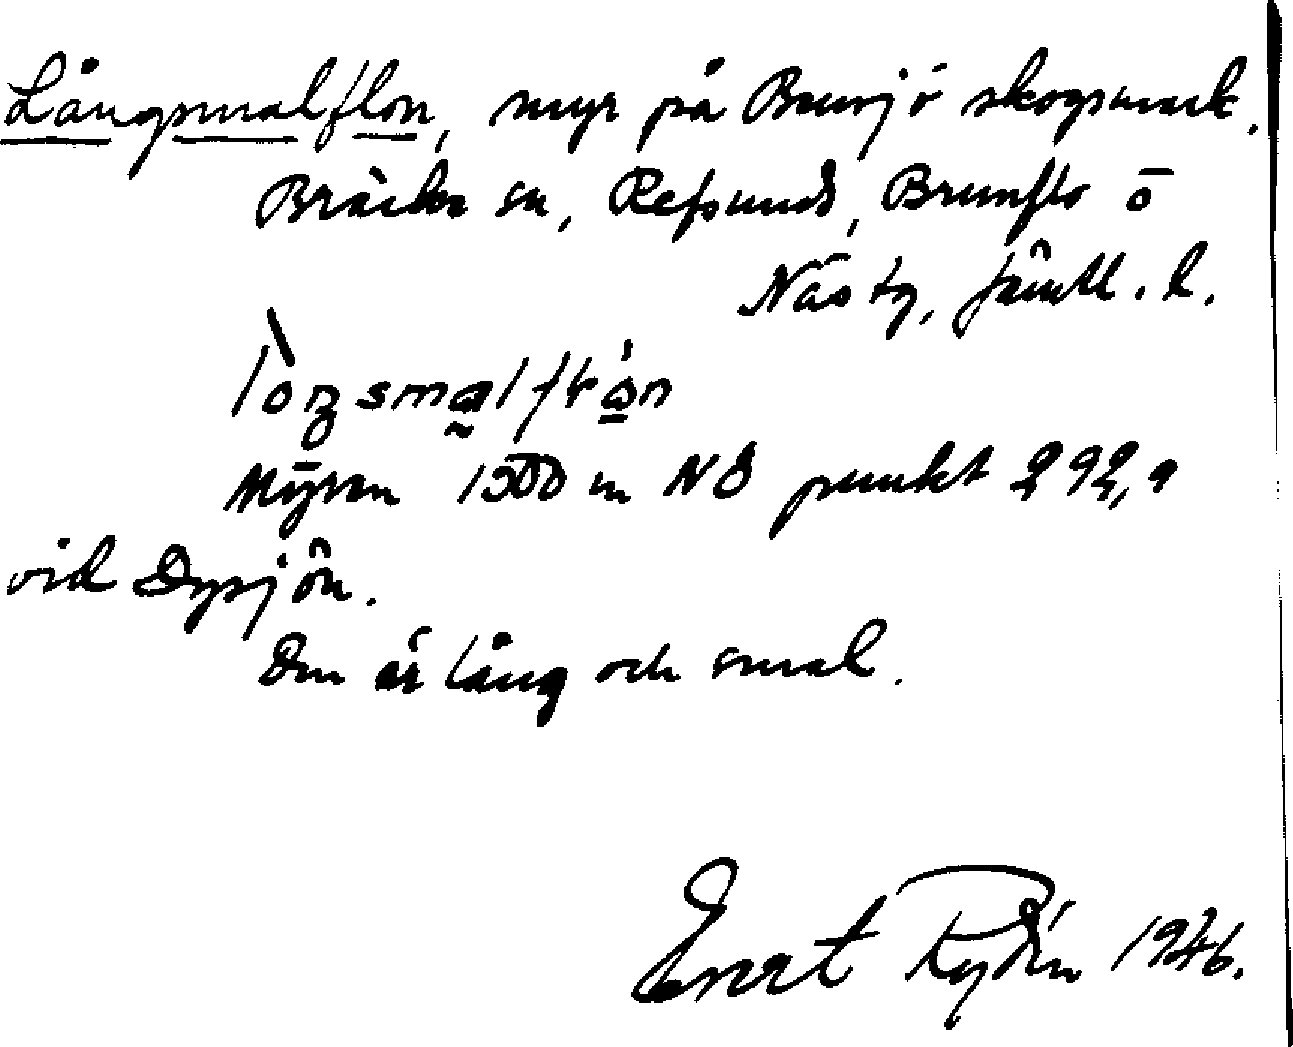 Långsmalflon, myr på Bensjö skogsmark.
Bräcke sn, Refsunds, Brunflo o
Näs tg, Jämtl. l.
Myren 1500 m NO punkt 292,9
vid Dysjön.
Den är lång och smal.
Evert Rydén 1946.